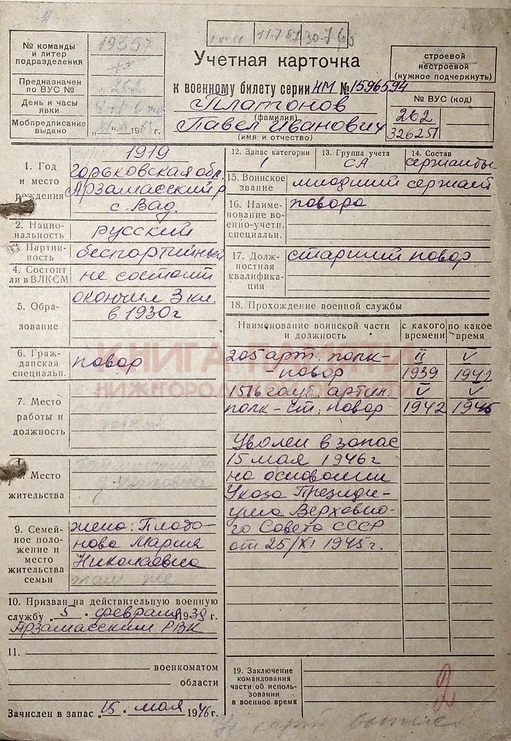 11.7.61 30-765
№ команды
и литер
подразделения
19357
Предназначен
по ВУС №
262
День и часы
явки
Мобпредписание
выдано
Учетная карточка
к военному билету серии НМ № 1596594
Платонов
(фамилия)
Павел Иванович
(имя и отчество)
строевой
нестроевой
(нужное подчеркнуть)
№ ВУС (код)
262
326251
1. Год
и место
рождения
1919
Горьковская обл.
Арзамасский р
с. Вад.
2. Нацио-
нальность
русский
3. Партий-
ность
беспортийный
4. Состоит
ли в ВЛКСМ
не состоит
5. Обра-
зование
окончил 3 кл
в 1930г
6. Граж-
данская
специальн.
повор
7. Место
работы и
должность
8. Место
жительства
9. Семей-
ное поло-
жение и
место
жительства
семьи
жена: Плато-
нова Мария
Николаевна
там же
10. Призван на действительную военную
службу „5“ февраля 1939 г.
Арзамасским РВК
11.
военкоматом
области
Зачислен в запас „15“ мая 1946 г.
12. Запас категории
13. Группа учета
СА
14. Состав
сержанты
15. Воинское
звание
младший сержант
16. Наиме-
нование во-
енно-учетн.
специальн.
повора
17. Долж-
ностная
квалифика-
ция
старший повор
18. Прохождение военной службы
Наименование воинской части
и должность
с какого
времени
по какое
время
205 арт. полк- II V
повор 1939 1942
1516 гауб. артил. V V
полк-ст. повор 1942 1946
Уволен в запас
15 мая 1946 г
на основании
Указа Президи-
ума Верховно-
го Совета СССР
от 25/XI 1945г.
19. Заключение
командования
части об исполь-
зовании
в военное время
2
КНИГА ПАМЯТИ